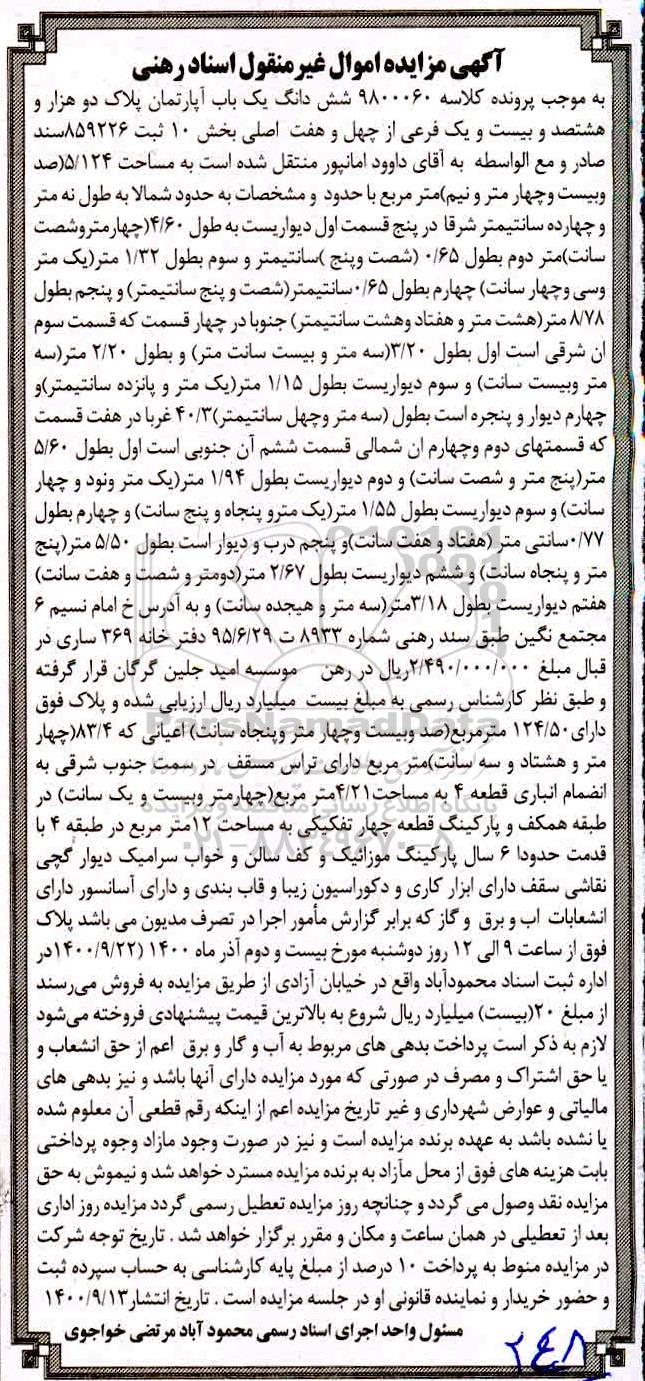 آگهی مزایده اموال غیرمنقول اسناد رهنی
به موجب پرونده کلاسه ۹۸۰۰۰۶۰ شش دانگ یک باب آپارتمان پلاک دو هزار و
هشتصد و بیست و یک فرعی از چهل و هفت اصلی بخش ۱۰ ثبت ۸۵۹۲۲۶سند
صادر و مع الواسطه به آقای داوود امانپور منتقل شده است به مساحت ۵/۱۲۴(صد
وبیست وچهار متر و نیم)متر مربع با حدود و مشخصات به حدود شمالا به طول نه متر
و چهارده سانتیمتر شرقا در پنج قسمت اول دیواریست به طول ۴/۶۰(چهارمتروشصت
سانت)متر دوم بطول ۰/۶۵ (شصت وپنج )سانتیمتر و سوم بطول ۱/۳۲ متر(یک متر
وسی وچهار سانت) چهارم بطول ۰/۶۵سانتیمتر(شصت و پنج سانتیمتر) و پنجم بطول
۸/۷۸ متر(هشت متر و هفتاد وهشت سانتیمتر) جنوبا در چهار قسمت که قسمت سوم
ان شرقی است اول بطول ۳/۲۰(سه متر و بیست سانت متر) و بطول ۲/۲۰ متر(سه
متر وبیست سانت) و سوم دیواریست بطول ۱/۱۵ متر(یک متر و پانزده سانتیمتر)و
چهارم دیوار و پنجره است بطول (سه متر وچهل سانتیمتر)۴۰/۳ غربا در هفت قسمت
که قسمتهای دوم وچهارم ان شمالی قسمت ششم آن جنوبی است اول بطول ۵/۶۰
متر(پنج متر و شصت سانت) و دوم دیواریست بطول ۱/۹۴ متر(یک متر ونود و چهار
سانت) و سوم دیواریست بطول ۱/۵۵ متر(یک مترو پنجاه و پنج سانت) و چهارم بطول
۰/۷۷سانتی متر (هفتاد و هفت سانت)و پنجم درب و دیوار است بطول ۵/۵۰ متر(پنج
متر و پنجاه سانت) و ششم دیواریست بطول ۲/۶۷ متر(دومتر و شصت و هفت سانت)
هفتم دیواریست بطول ۳/۱۸متر(سه متر و هیجده سانت) و به آدرس خ امام نسیم ۶
مجتمع نگین طبق سند رهنی شماره ۸۹۳۳ ت ۹۵/۶/۲۹ دفتر خانه ۳۶۹ ساری در
قبال مبلغ ۲/۴۹۰/۰۰۰/۰۰۰ریال در رهن موسسه امید جلین گرگان قرار گرفته
و طبق نظر کارشناس رسمی به مبلغ بیست میلیارد ریال ارزیابی شده و پلاک فوق
دارای۱۲۴/۵۰ مترمربع(صد وبیست وچهار متر وپنجاه سانت) اعیانی که ۸۳/۴(چهار
متر و هشتاد و سه سانت)متر مربع دارای تراس مسقف در سمت جنوب شرقی به
انضمام انباری قطعه ۴ به مساحت۴/۲۱متر مربع(چهارمتر وبیست و یک سانت) در
طبقه همکف و پارکینگ قطعه چهار تفکیکی به مساحت ۱۲متر مربع در طبقه ۴ با
قدمت حدودا ۶ سال پارکینگ موزائیک و کف سالن و خواب سرامیک دیوار گچی
نقاشی سقف دارای ابزار کاری و دکوراسیون زیبا و قاب بندی و دارای آسانسور دارای
انشعابات اب و برق و گاز که برابر گزارش مأمور اجرا در تصرف مدیون می باشد پلاک
فوق از ساعت ۹ الی ۱۲ روز دوشنبه مورخ بیست و دوم آذر ماه ۱۴۰۰ (۱۴۰۰/۹/۲۲در
اداره ثبت اسناد محمودآباد واقع در خیابان آزادی از طریق مزایده به فروش می‌رسند
از مبلغ ۲۰(بیست) میلیارد ریال شروع به بالاترین قیمت پیشنهادی فروخته می‌شود
لازم به ذکر است پرداخت بدهی های مربوط به آب و گار و برق اعم از حق انشعاب و
یا حق اشتراک و مصرف در صورتی که مورد مزایده دارای آنها باشد و نیز بدهی های
مالیاتی و عوارض شهرداری و غیر تاریخ مزایده اعم از اینکه رقم قطعی آن معلوم شده
یا نشده باشد به عهده برنده مزایده است و نیز در صورت وجود مازاد وجوه پرداختی
بابت هزینه های فوق از محل مآزاد به برنده مزایده مسترد خواهد شد و نیموش به حق
مزایده نقد وصول می گردد و چنانچه روز مزایده تعطیل رسمی گردد مزایده روز اداری
بعد از تعطیلی در همان ساعت و مکان و مقرر برگزار خواهد شد . تاریخ توجه شرکت
در مزایده منوط به پرداخت ۱۰ درصد از مبلغ پایه کارشناسی به حساب سپرده ثبت
و حضور خریدار و نماینده قانونی او در جلسه مزایده است . تاریخ انتشار۱۴۰۰/۹/۱۳
مسئول واحد اجرای اسناد رسمی محمود آباد مرتضی خواجوی
ParsNamadData
پایگاه اطلاع رسانی مناقصه و مزایده
۰۲۱-۸۸۳۴۹۶۷۰-۵